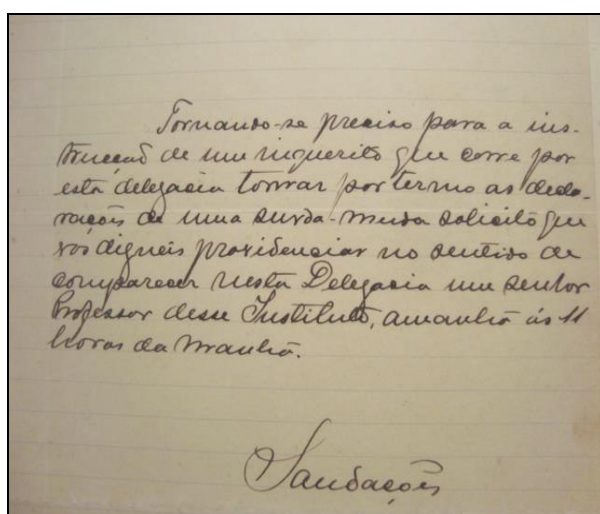 Tornando-se preciso para a ins-
trucção de um inquerito que corre por
esta delegacia tomar por termo as decla-
rações de uma surda-muda solicito que
vos digneis providenciar no sentido de
comparecer nesta Delegacia um senhor
Professor desse Instituto, amanhã ás 11
horas da manhã.
Saudações